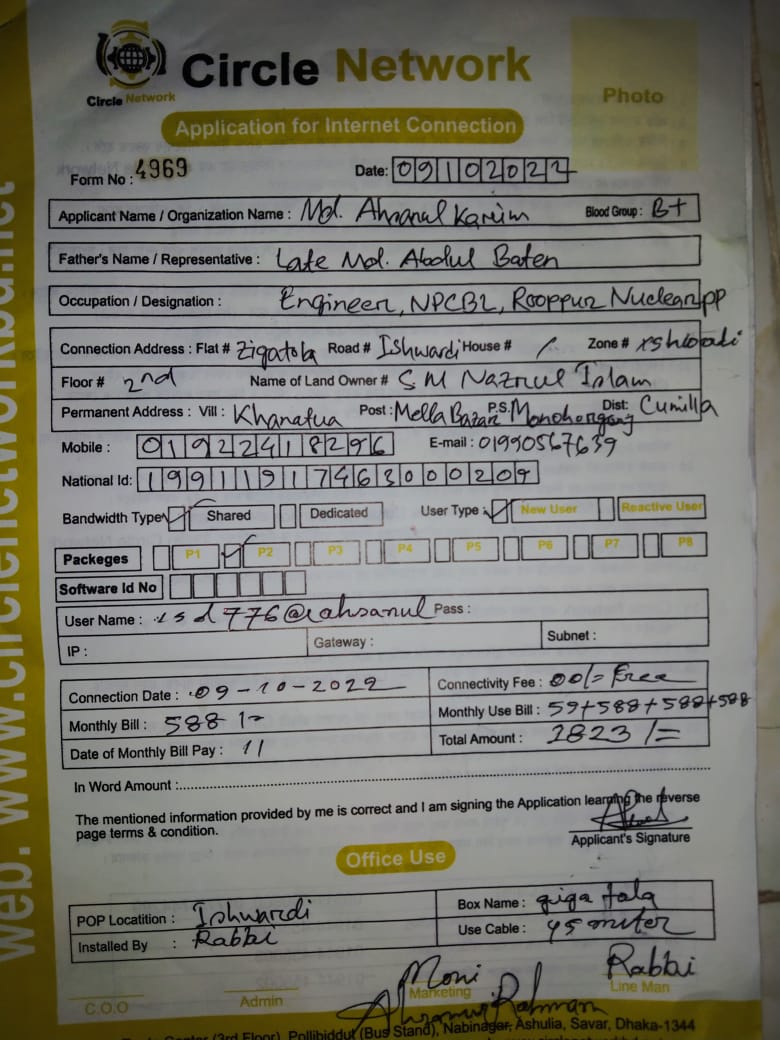 Circle Network
Circle Network
Photo
Application for Internet Connection
Form No : 4969 Date: 09102022
Applicant Name / Organization Name : Md. Ahsanul Karim Blood Group : B+
Father's Name / Representative : Late Md. Abdul Baten
Occupation / Designation : Engineer, NPCBL, Rooppur Nuclear PP
Connection Address : Flat # Zigatola Road # Ishwardi House # / Zone #
Floor # 2nd Name of Land Owner # S M Nazrul Islam
Permanent Address : Vill : Khanatua Post : Mella Bazar P.S. Monohorganj Dist: Cumilla
Mobile : 01922418296 E-mail : 01990567639
National Id: 19911917463000209
Bandwidth Type Shared Dedicated User Type : New User Reactive User
Packeges P1 P2 P3 P4 P5 P6 P7 P8
Software Id No
User Name : isd776@rahsanul Pass :
IP : Gateway : Subnet :
Connection Date : 09-10-2022 Connectivity Fee : 00/= Free
Monthly Bill : 588 /= Monthly Use Bill : 59+588+588+588
Date of Monthly Bill Pay : 11 Total Amount : 1823 /=
In Word Amount :
The mentioned information provided by me is correct and I am signing the Application learning the reverse
page terms & condition.
Applicant's Signature
Office Use
POP Locatition : Ishwardi Box Name : giga tala
Installed By : Rabbi Use Cable : 45 miter
Moni Rabbi
C.O.O Admin Marketing Line Man
(3rd Floor), Pollibiddut (Bus Stand), Nabinagar, Ashulia, Savar, Dhaka-1344
web. www.circlenetworkbd.net